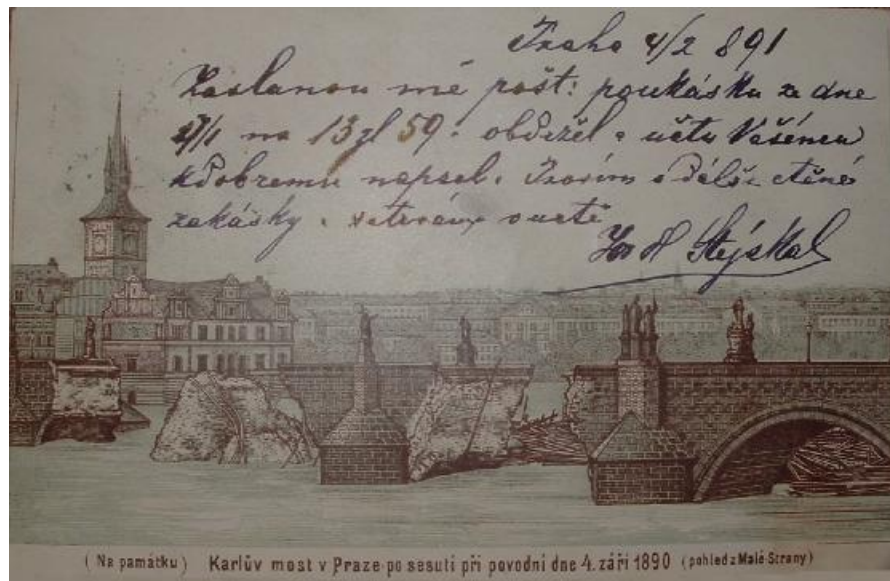 Praha 4/2 891
Zaslanou mě pošt: poukásku ze dne
27/1 na 13 zl 59 obdržel a účtu Vašému
kdobremu napsal. Prosím o další ctěné
zakásky. v úctě
Jos A Stýskal
(Na památku) Karlův most v Praze po sesutí při povodni dne 4. září 1890 (pohled z Malé Strany)